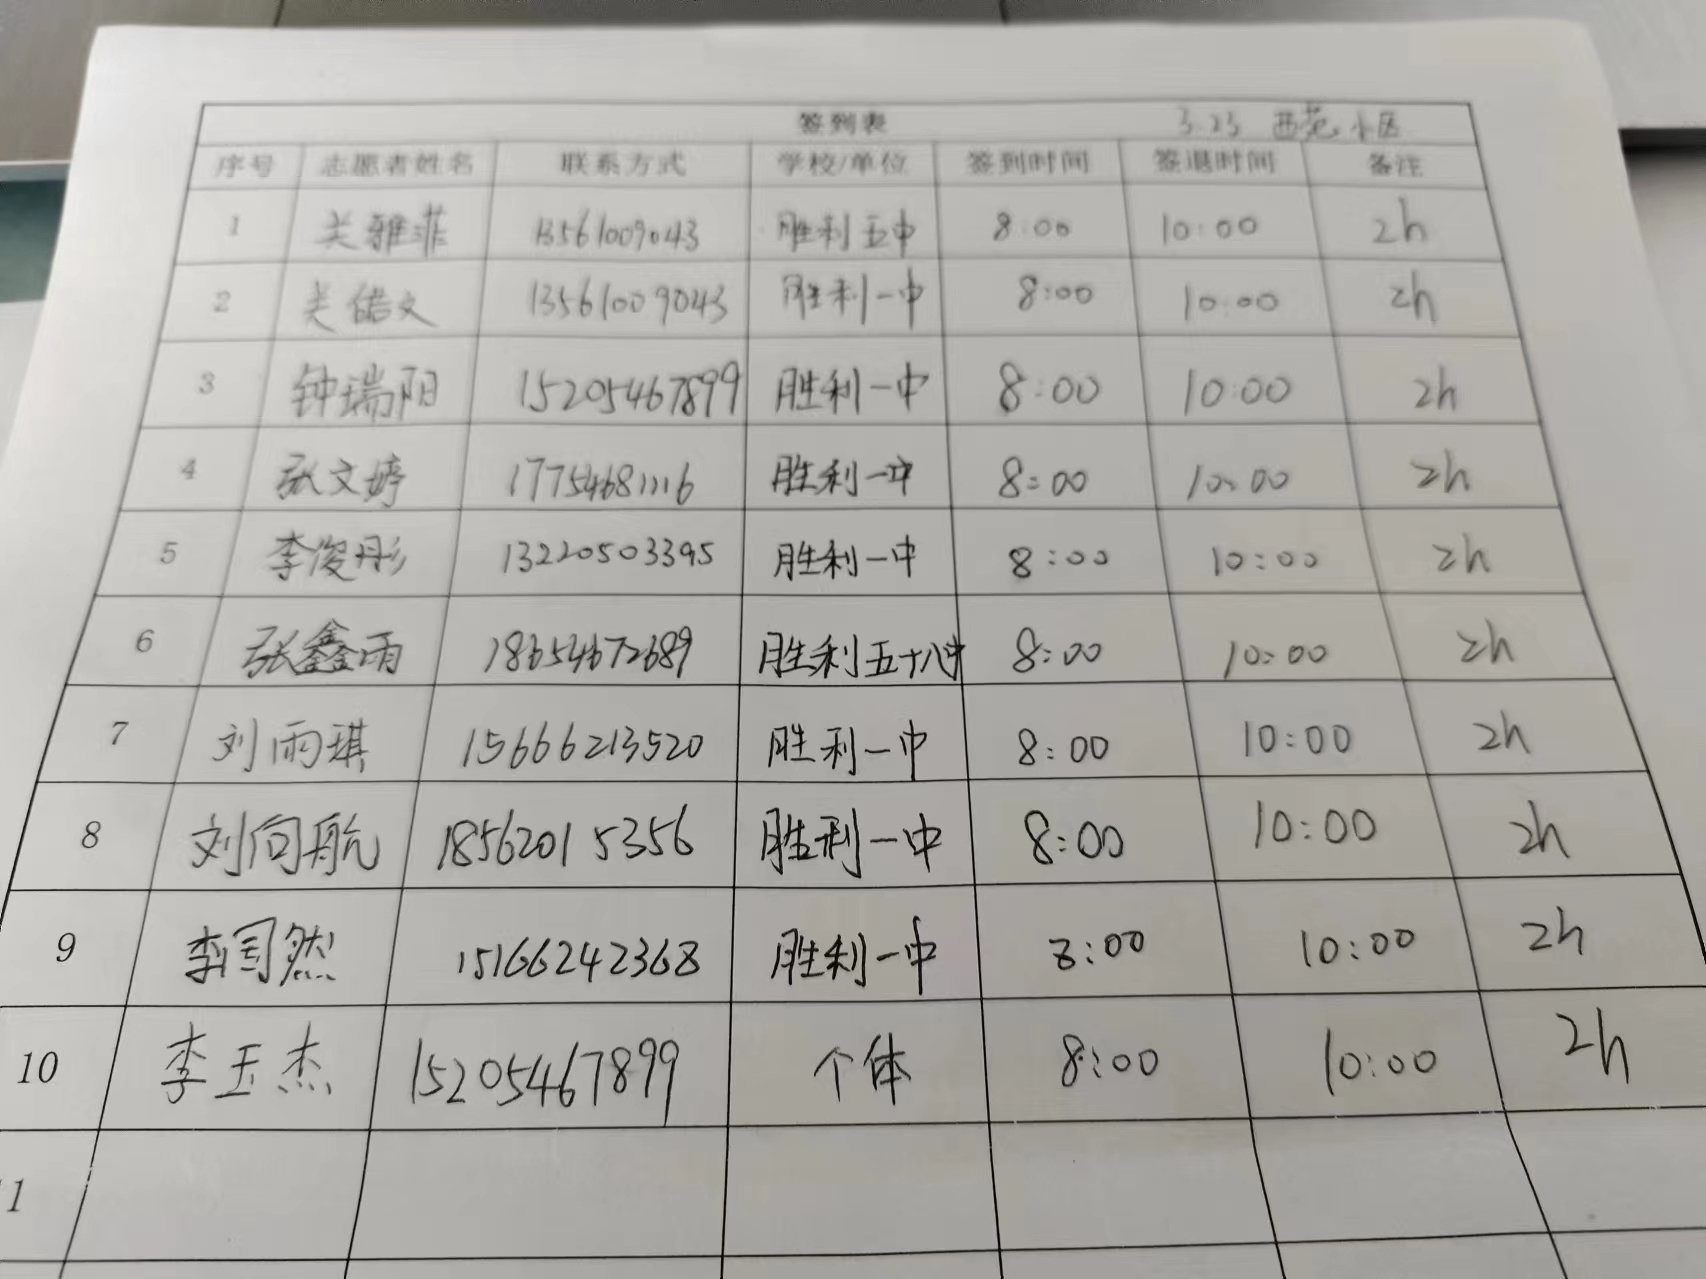 签到表 3.23 西苑小区
序号 志愿者姓名 联系方式 学校/单位 签到时间 签退时间 备注
1 关雅菲 13561009043 胜利五中 8:00 10:00 2h
2 关偌文 13561009043 胜利一中 8:00 10:00 2h
3 钟瑞阳 15205467899 胜利一中 8:00 10:00 2h
4 张文婷 17754681116 胜利一中 8:00 10:00 2h
5 李俊彤 13220503395 胜利一中 8:00 10:00 2h
6 张鑫雨 18654672689 胜利五十八中 8:00 10:00 2h
7 刘雨琪 15666213520 胜利一中 8:00 10:00 2h
8 刘向航 18562015356 胜利一中 8:00 10:00 2h
9 李국然 15166242368 胜利一中 8:00 10:00 2h
10 李玉杰 15205467899 个体 8:00 10:00 2h
11